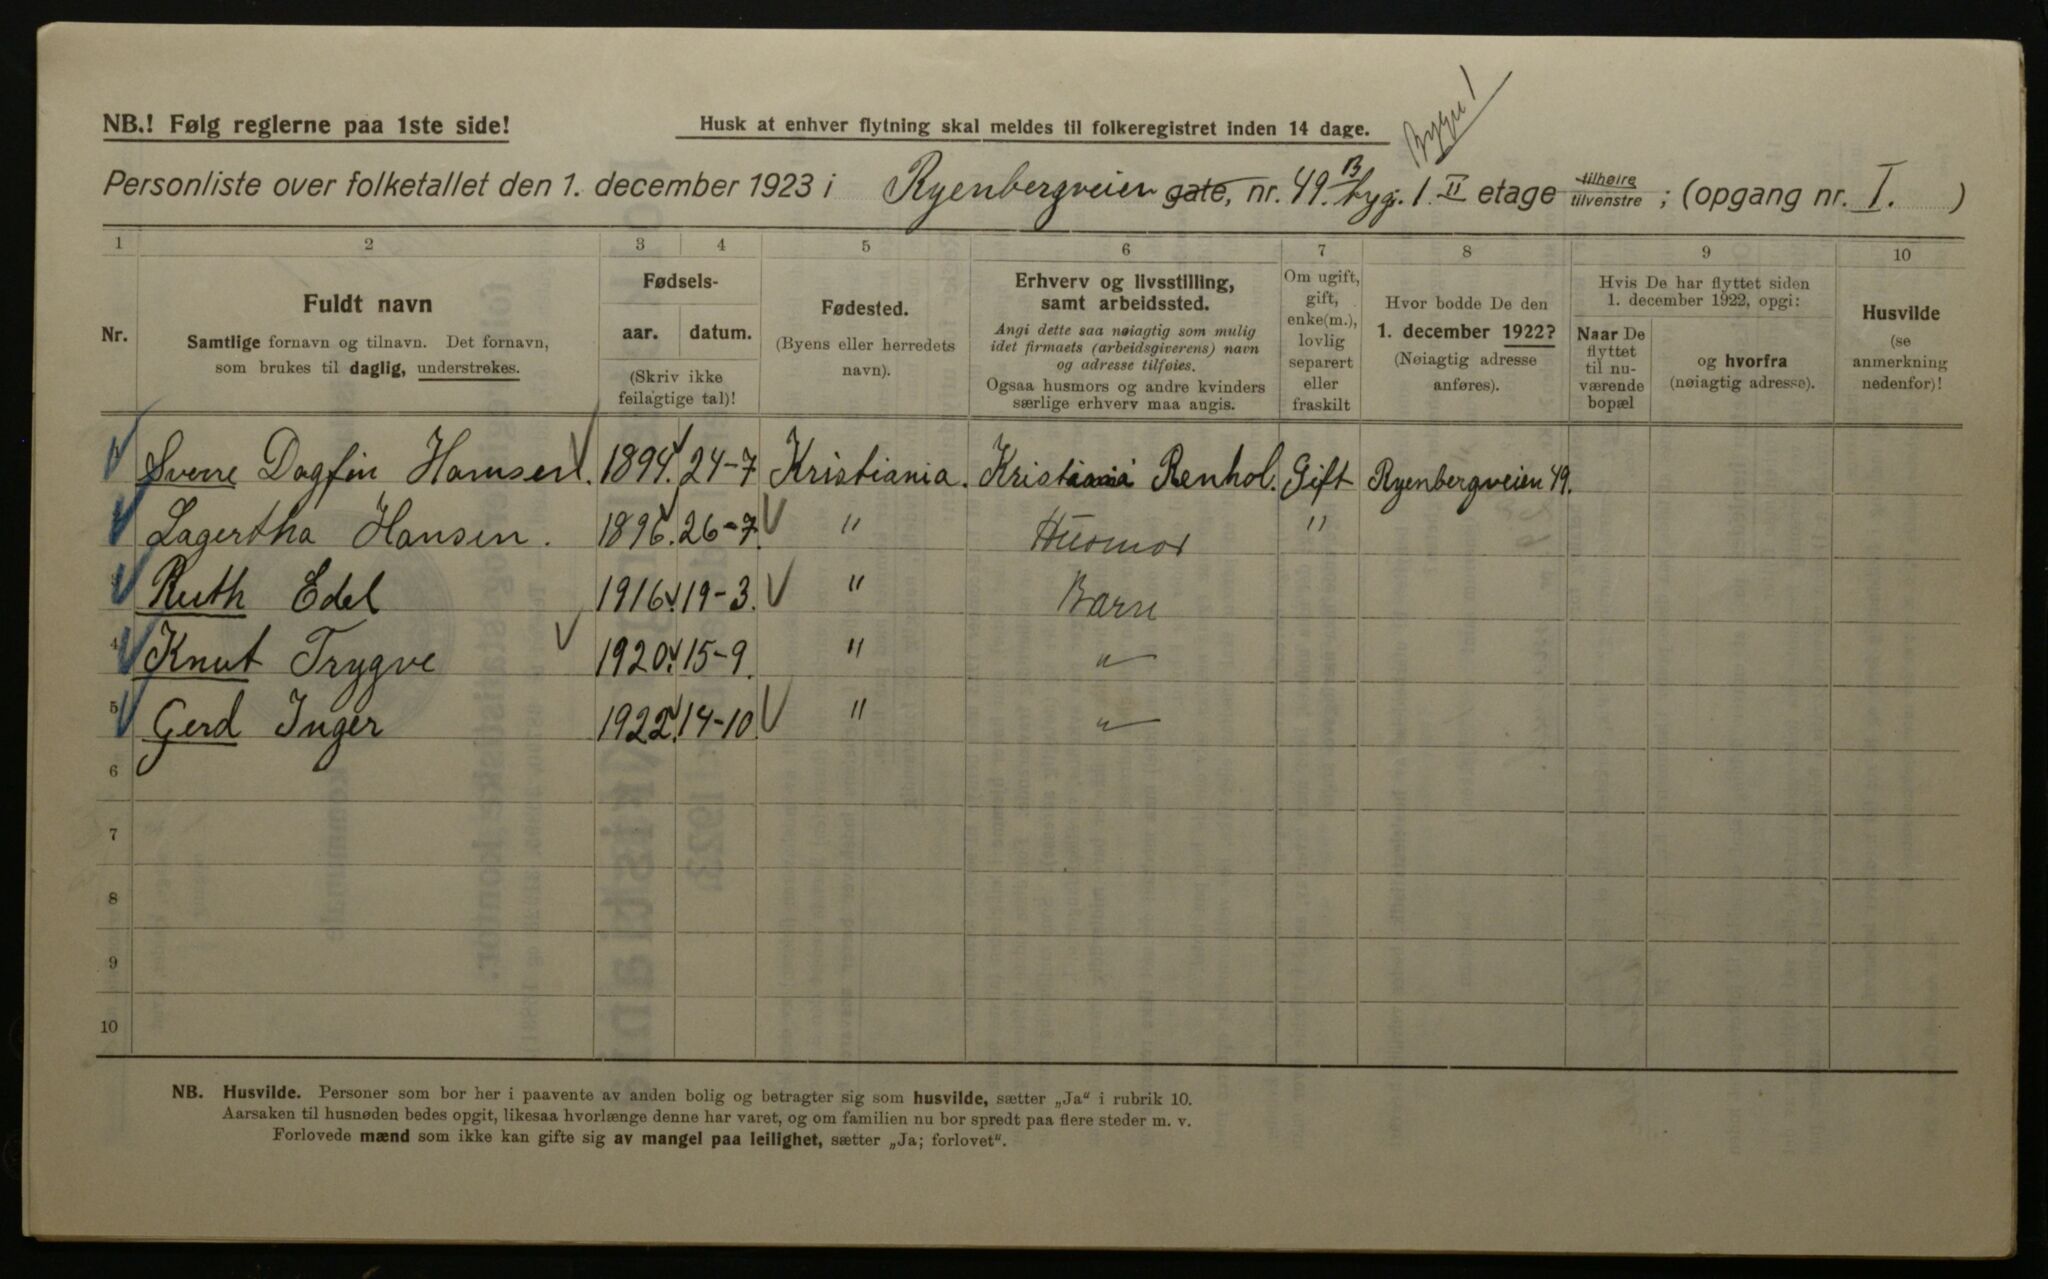 NB.! Følg reglerne paa 1ste side!
Husk at enhver flytning skal meldes til folkeregistret inden 14 dage.
Bygn 1
Personliste over folketallet den 1. december 1923 i Ryenbergveien gate, nr. 49. B byg. 1. II etage tilhøire tilvenstre ; (opgang nr. I. )
1 2 3 4 5 6 7 8 9 10
Nr.
Fuldt navn
Samtlige fornavn og tilnavn. Det fornavn,
som brukes til daglig, understrekes.
Fødsels-
aar. datum.
(Skriv ikke
feilagtige tal)!
Fødested.
(Byens eller herredets
navn).
Erhverv og livsstilling,
samt arbeidssted.
Angi dette saa nøiagtig som mulig
idet firmaets (arbeidsgiverens) navn
og adresse tilføies.
Ogsaa husmors og andre kvinders
særlige erhverv maa angis.
Om ugift,
gift,
enke(m.),
lovlig
separert
eller
fraskilt
Hvor bodde De den
1. december 1922?
(Nøiagtig adresse
anføres).
Hvis De har flyttet siden
1. december 1922, opgi:
Naar De
flyttet
til nu-
værende
bopæl
og hvorfra
(nøiagtig adresse).
Husvilde
(se
anmerkning
nedenfor)!
Sverre Dagfin Hansen. 1894. 24-7 Kristiania. Kristiania Renhol. Gift Ryenbergveien 49.
Lagertha Hansen. 1896. 26-7. " Husmor "
3 Ruth Edel 1916. 19-3. " Barn
4 Knut Trygve 1920. 15-9. " "
5 Gerd Inger 1922. 14-10. " "
6
7
8
9
10
NB. Husvilde. Personer som bor her i paavente av anden bolig og betragter sig som husvilde, sætter „Ja" i rubrik 10.
Aarsaken til husnøden bedes opgit, likesaa hvorlænge denne har varet, og om familien nu bor spredt paa flere steder m. v.
Forlovede mænd som ikke kan gifte sig av mangel paa leilighet, sætter „Ja; forlovet".